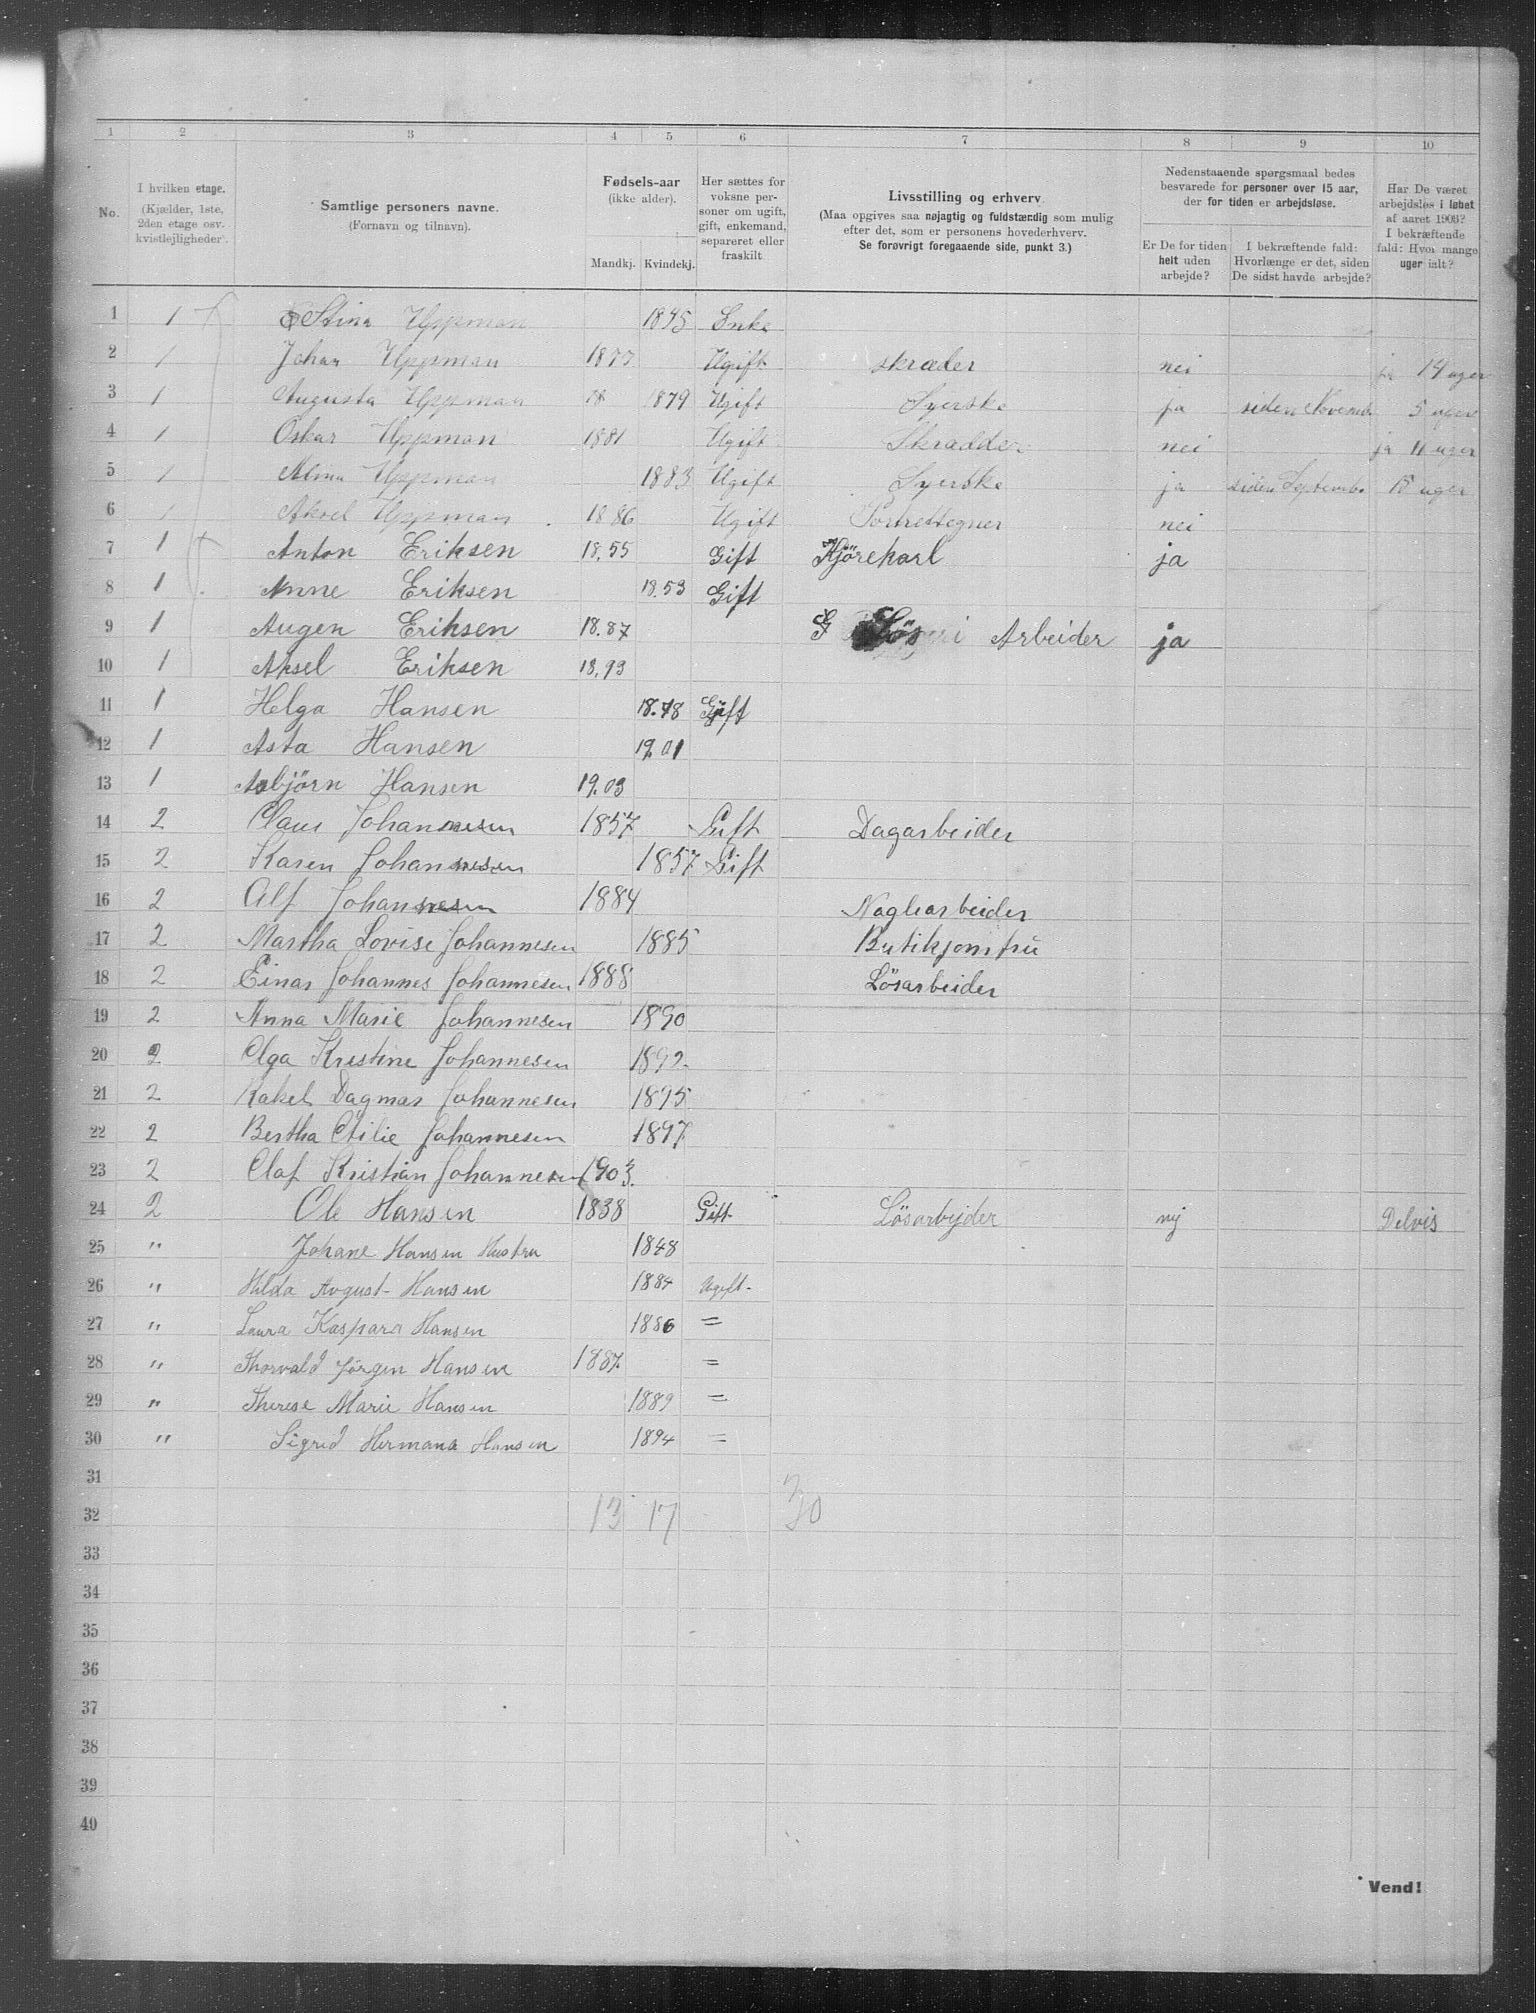 1 2 3 4 5 6 7 8 9 10
No.
I hvilken etage.
(Kjælder, 1ste,
2den etage osv.
kvistlejligheder).
Samtlige personers navne.
(Fornavn og tilnavn).
Fødsels-aar
(ikke alder).
Mandkj. Kvindekj.
Her sættes for
voksne per-
soner om ugift,
gift, enkemand,
separeret eller
fraskilt
Livsstilling og erhverv.
(Maa opgives saa nøjagtig og fuldstændig som mulig
efter det, som er personens hovederhverv.
Se forøvrigt foregaaende side, punkt 3.)
Nedenstaaende spørgsmaal bedes
besvarede for personer over 15 aar,
der for tiden er arbejdsløse.
Er De for tiden
helt uden
arbejde?
I bekræftende fald:
Hvorlænge er det, siden
De sidst havde arbejde?
Har De været
arbejdsløs i løbet
af aaret 1903?
I bekræftende
fald: Hvor mange
uger ialt?
1 1 Stina Uppman 1845 Enke
2 1 Johan Uppman 1877 Ugift skræder nei ja 14 uger
3 1 Augusta Uppman 18 1879 Ugift Syerske ja siden Novemb 5 uger
4 1 Oskar Uppman 1881 Ugift Skrædder nei ja 11 uger
5 1 Alma Uppman 1883 Ugift Syerske ja siden Septembe 15 uger
6 1 Aksel Uppman 1886 Ugift Portrettegner nei
7 1 Anton Eriksen 18.55 Gift Kjörekarl ja
8 1 Anne Eriksen 18.53 Gift
9 1 Augen Eriksen 18.87 Lös Arbeider ja
10 1 Aksel Eriksen 18.93
11 1 Helga Hansen 18.78 Gift
12 1 Asta Hansen 19.01
13 1 Asbjörn Hansen 19.03
14 2 Claus Johannesen 1857 Gift Dagarbeider
15 2 Karen Johannesen 1857 Gift
16 2 Alf Johannesen 1884 Naglearbeider
17 2 Martha Lovise Johannesen 1885 Butikjomfru
18 2 Einar Johannes Johannesen 1888 Lösarbeider
19 2 Anna Marie Johannesen 1890
20 2 Olga Kristine Johannesen 1892
21 2 Rakel Dagmar Johannesen 1895
22 2 Bertha Otilie Johannesen 1897
23 2 Olaf Kristian Johannesen 1903.
24 2 Ole Hansen 1838 Gift Lösarbejder nej Delvis
25 " Johane Hansen Hustru 1848
26 " Hilda Avgust- Hansen 1884 Ugift-
27 " Laura Kaspara Hansen 1886 =
28 " Thorvald Jörgen Hansen 1887. =
29 " Therese Marie Hansen 1889 =
30 " Sigrid Hermana Hansen 1894 =
31
32 13 17 30
33
34
35
36
37
38
39
40
Vend!